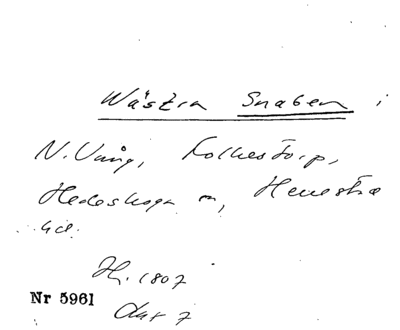 Wästra Snaben i
N. Vång, Folkestorp,
Hedeskoga m, Henestad
H. 1807
Nr 5961
Akt 7